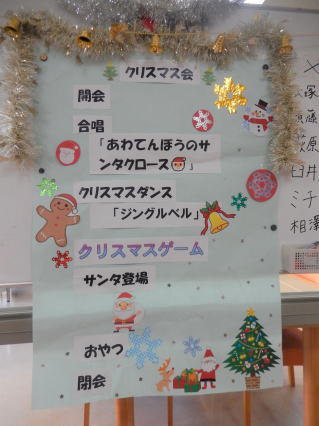 クリスマス会
開会
合唱
「あわてんぼうのサ
ンタクロース」
クリスマスダンス
「ジングルベル」
クリスマスゲーム
サンタ登場
おやつ
閉会
塚
藤
萩原
臼井
ミチ
相澤